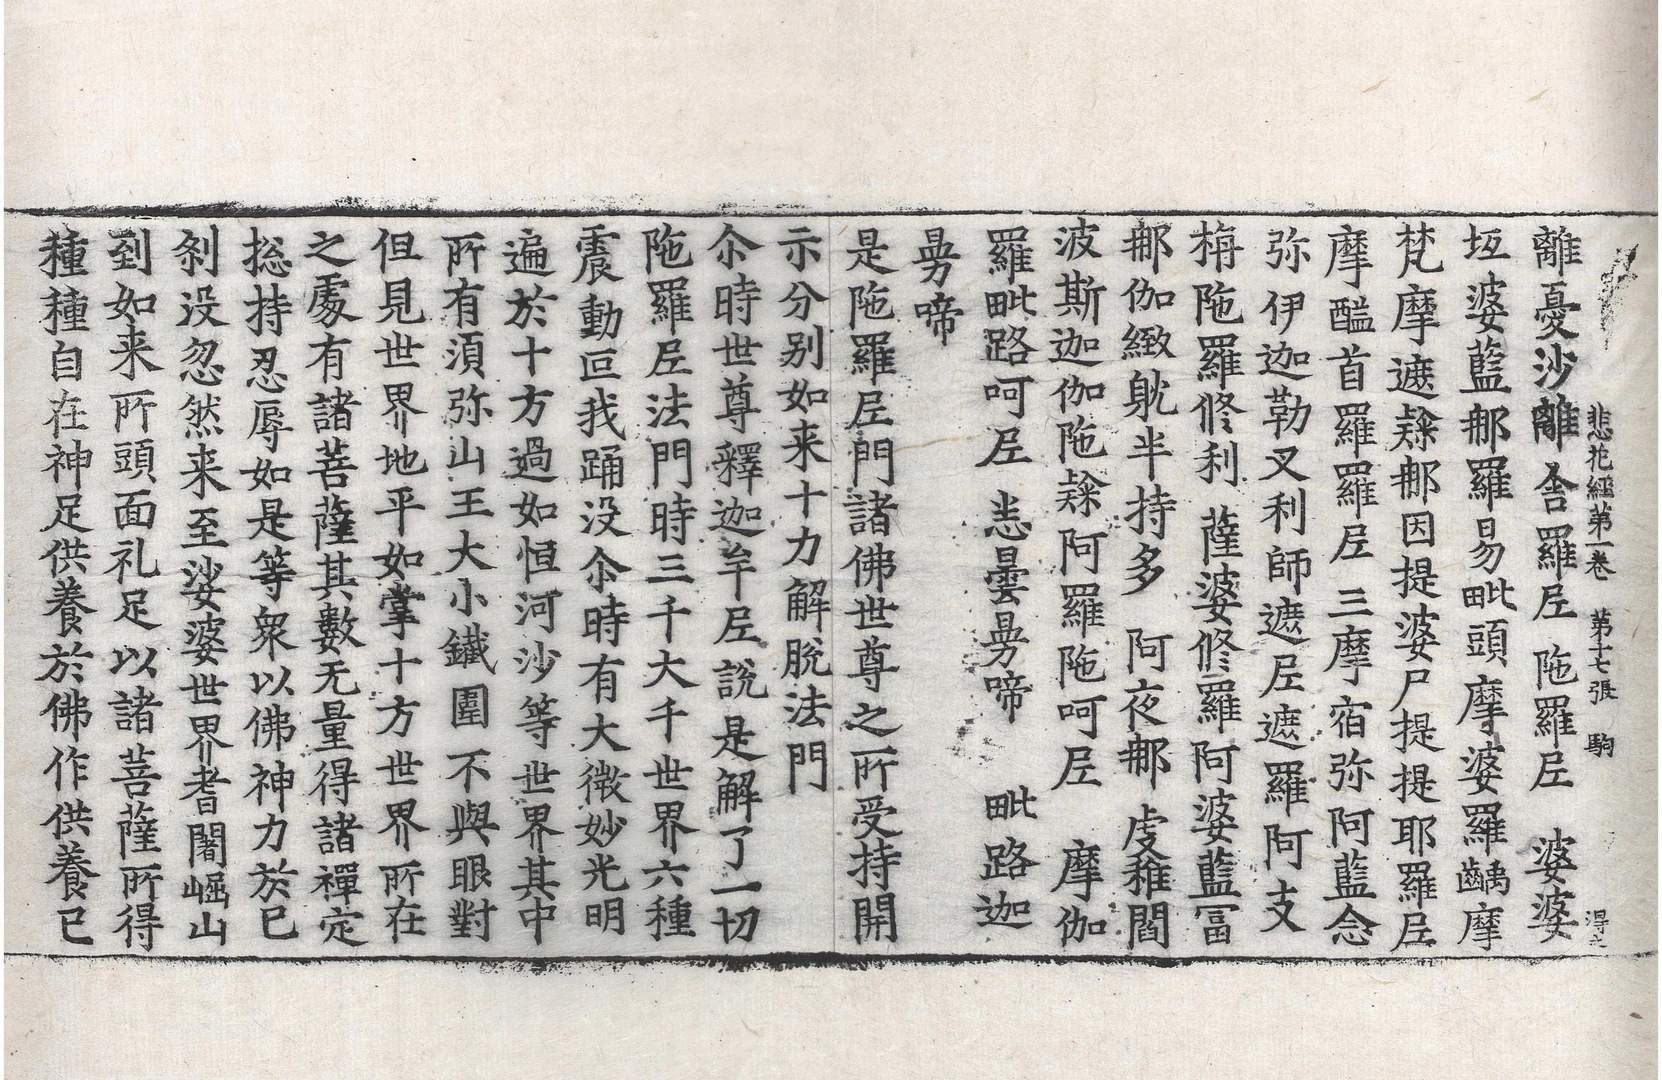 悲花経第一卷　第十七張　駒　得之
離憂沙離　舍羅𡰱　陁羅𡰱　婆婆
坘婆藍那羅易毗頭摩婆羅齲摩
梵摩遮䅶那因提婆尸提提耶羅𡰱
摩醯首羅羅𡰱　三摩宿弥阿藍念
弥伊迦勒叉利師遮𡰱遮羅阿支
栴陁羅修利　薩婆修羅阿婆藍冨
那伽緻躭半持多　阿夜那　虔稚閻
波斯迦伽陁䅶阿羅陁呵𡰱　摩伽
羅毗路呵𡰱　悉曇㝵啼　毗路迦
㝵啼
是陁羅𡰱門諸佛世尊之所受持開
示分别如来十力解脫法門
尒時世尊釋迦牟𡰱說是解了一切
陁羅𡰱法門時三千大千世界六種
震動叵我踊没尒時有大微妙光明
遍於十方過如恒河沙等世界其中
所有湏弥山王大小鐵圍不與眼對
但見世界地平如掌十方世界所在
之處有諸菩薩其數无量得諸禪定
捴持忍辱如是等衆以佛神力於已
刹没忽然来至娑婆世界耆闍崛山
到如来所頭面礼足以諸菩薩所得
種種自在神足供養於佛作供養已